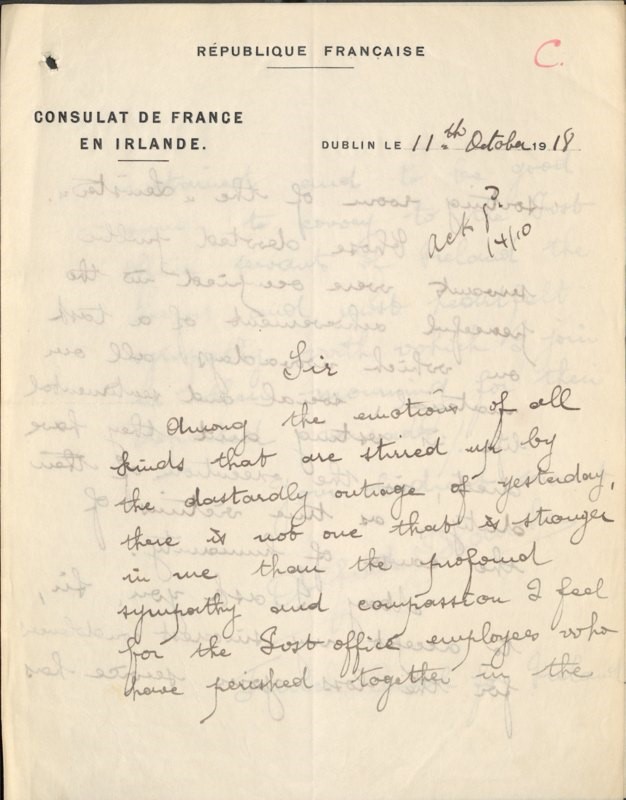 RÉPUBLIQUE FRANÇAISE
C.
CONSULAT DE FRANCE
EN IRLANDE.
DUBLIN LE 11th October 1918
ackd
14/10
Sir
Among the emotions of all
kinds that are stirred up by
the dastardly outrage of yesterday,
there is not one that is stronger
in me than the profound
sympathy and compassion I feel
for the Post office employees who
have perished together in the